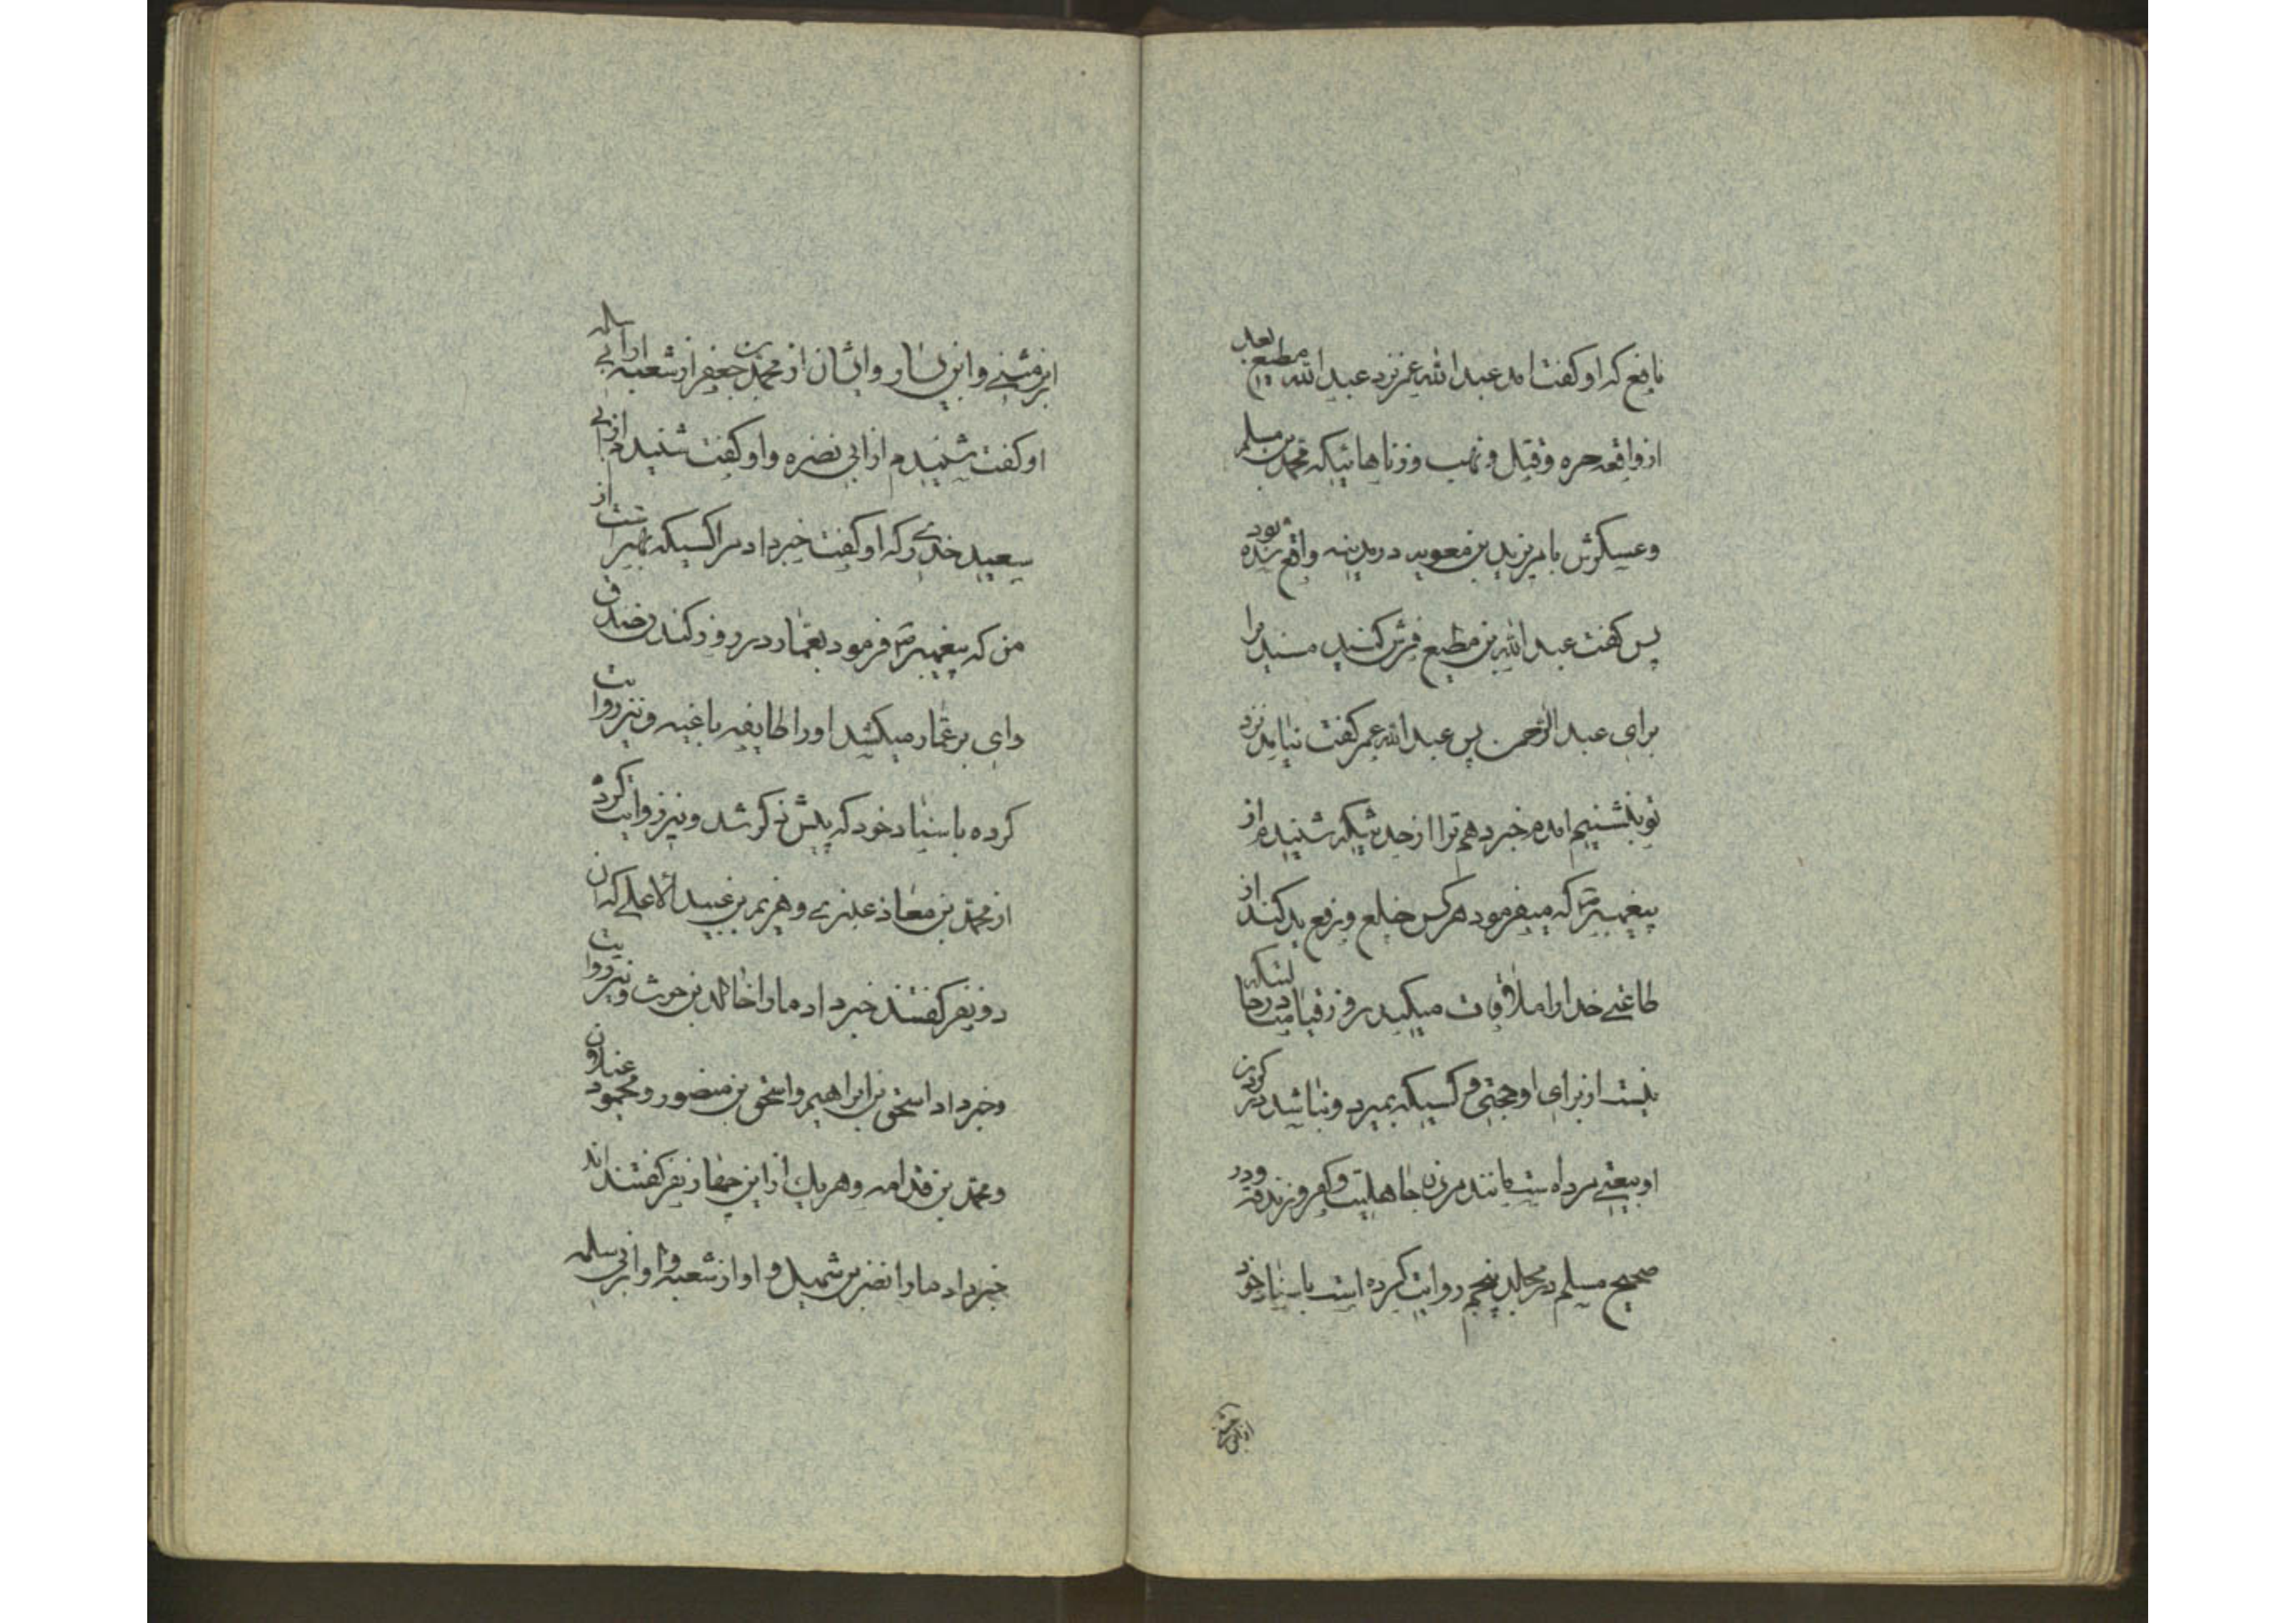 نافع که او کفت امد عبدالله عمر نزد عبدالله مطیع بعد
از واقعه حره و قتل و نهب و زناهائیکه محمد بن مسلم
و عسکرش بامر یزید بن معویه در مدینه واقع شده بود
پس کفت عبدالله بن مطیع فرش کنید مسند مرا
برای عبدالرحمن پس عبدالله عمر کفت نیامدم نزد
تو بنشینم امدم خبر دهم ترا از حدیثیکه شنیدم از
پیغمبر ص که میفرمود هر کس خلع و نزع ید کند از
طاغتی خدا را ملاقات میکند روز قیامت در حالتیکه
نیست از برای او حجتی و کسیکه بمیرد و نباشد در کردن
او بیعتی مرده است مانند مردن جاهلیت و کفر و زندقه و در
صحیح مسلم در مجلد پنجم روایت کرده است باسناد خود
از ابن مثنی
ابن مثنی و ابن بشار و ایشان از محمد بن جعفر از شعبه از ابی سلمه
او کفت شنیدم از ابی نضره و او کفت شنیدم از ابی
سعید خدری که او کفت خبر داد مرا کسیکه بهتر است از
من که پیغمبر ص فرمود بعمار در روز کندن خندق
وای بر عمار میکشد او را طایفه باغیه و نیز روایت
کرده باسناد خود که پیش ذکر شد و نیز روایت کرده
از محمد بن معاذ عنبری و هریم بن عبدالاعلی که ان
دو نفر کفتند خبر داد ما را خالد بن حرث و نیز روایت
و خبر داد اسحق بن ابراهیم و اسحق بن منصور و محمود غیلان
و محمد بن قدامه و هر یک از این چهار نفر کفتند اند
خبر داد ما را نضر بن شمیل و او از شعبه و او از ابی سلمه